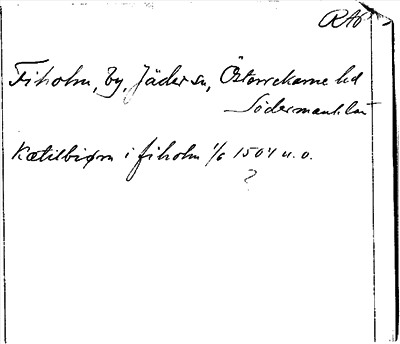 RAÖ
Fiholm, by, Jäder sn, Österrekarne hd
Södermanl. län
Kætilbiørn i fiholm 1/6 1504 u. o.
?